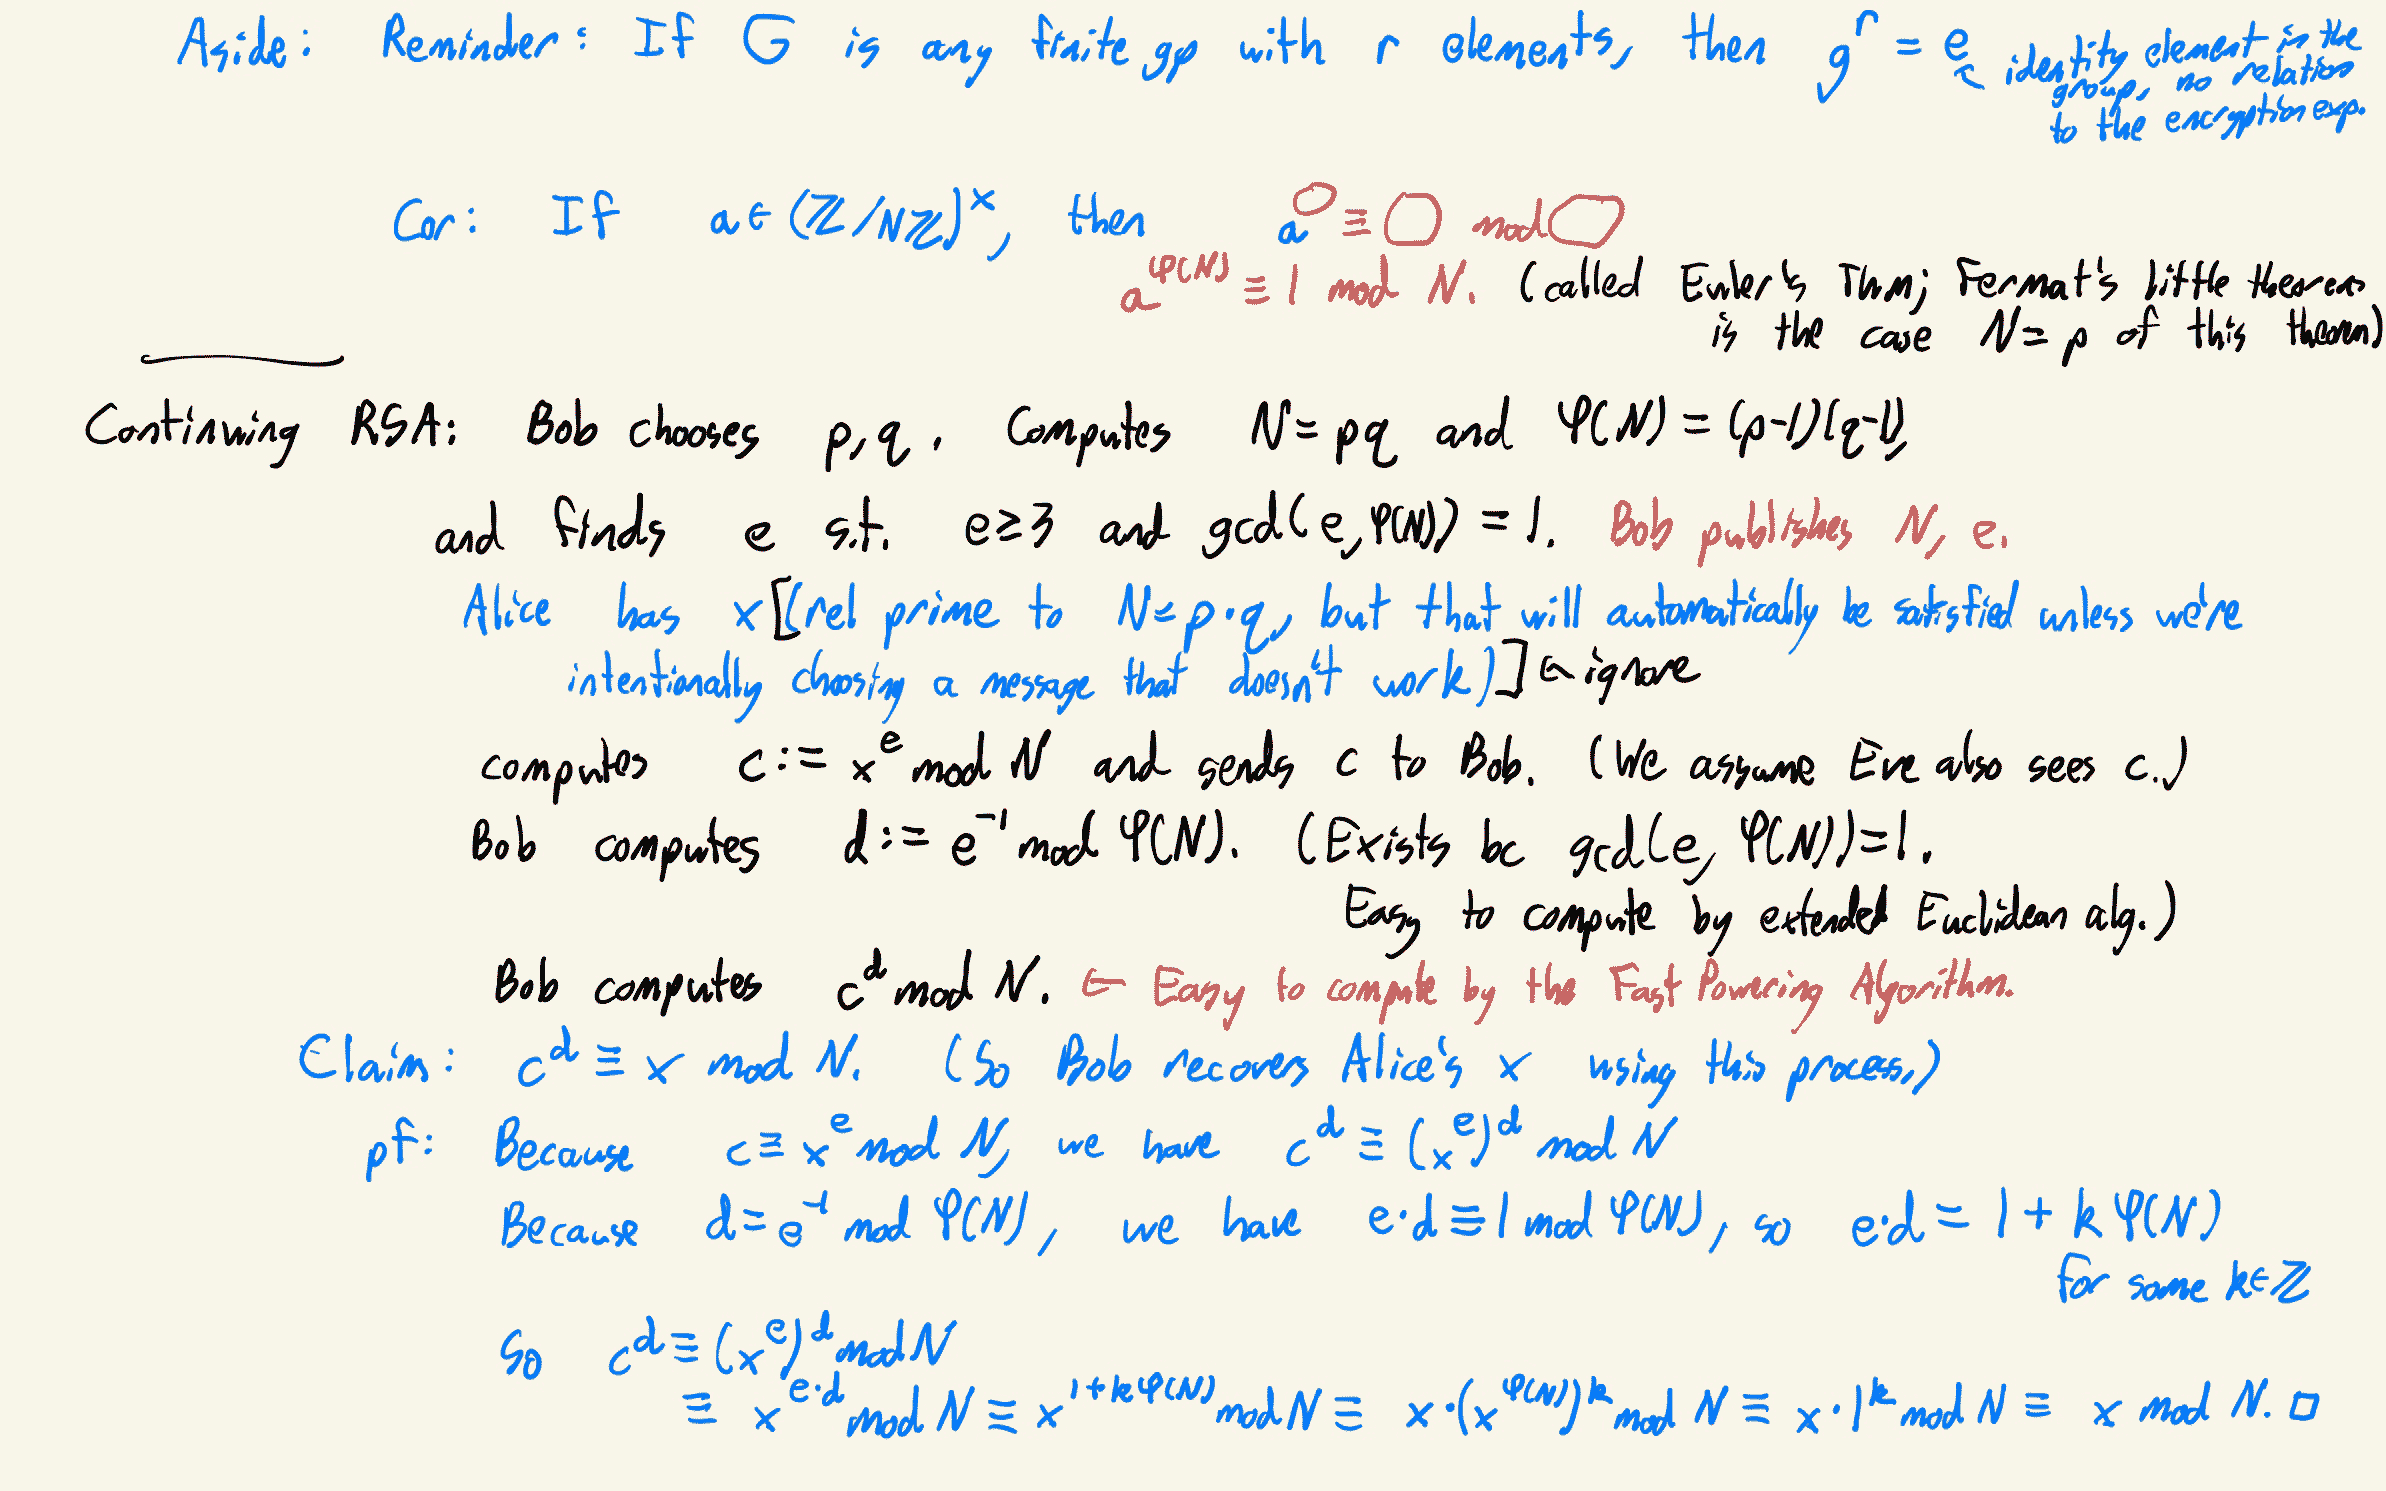 Aside: Reminder: If G is any finite gp with r elements, then g^r = e ↖ identity element in the
group, no relation
to the encryption exp.
Cor: If a ∈ (ℤ/Nℤ)^×, then a^○ ≡ ○ mod ○
a^φ(N) ≡ 1 mod N. (called Euler's Thm; Fermat's little theorem
is the case N=p of this theorem)
Continuing RSA: Bob chooses p, q. Computes N = pq and φ(N) = (p-1)(q-1),
and finds e s.t. e ≥ 3 and gcd(e, φ(N)) = 1. Bob publishes N, e.
Alice has x [(rel prime to N=p·q, but that will automatically be satisfied unless we're
intentionally choosing a message that doesn't work)] ← ignore
computes c := x^e mod N and sends c to Bob. (We assume Eve also sees c.)
Bob computes d := e^-1 mod φ(N). (Exists bc gcd(e, φ(N))=1.
Easy to compute by extended Euclidean alg.)
Bob computes c^d mod N. ← Easy to compute by the Fast Powering Algorithm.
Claim: c^d ≡ x mod N. (So Bob recovers Alice's x using this process.)
pf: Because c ≡ x^e mod N, we have c^d ≡ (x^e)^d mod N
Because d = e^-1 mod φ(N), we have e·d ≡ 1 mod φ(N), so e·d = 1 + k φ(N)
for some k∈ℤ
So c^d ≡ (x^e)^d mod N
≡ x^e·d mod N ≡ x^1+kφ(N) mod N ≡ x·(x^φ(N))^k mod N ≡ x·1^k mod N ≡ x mod N. □